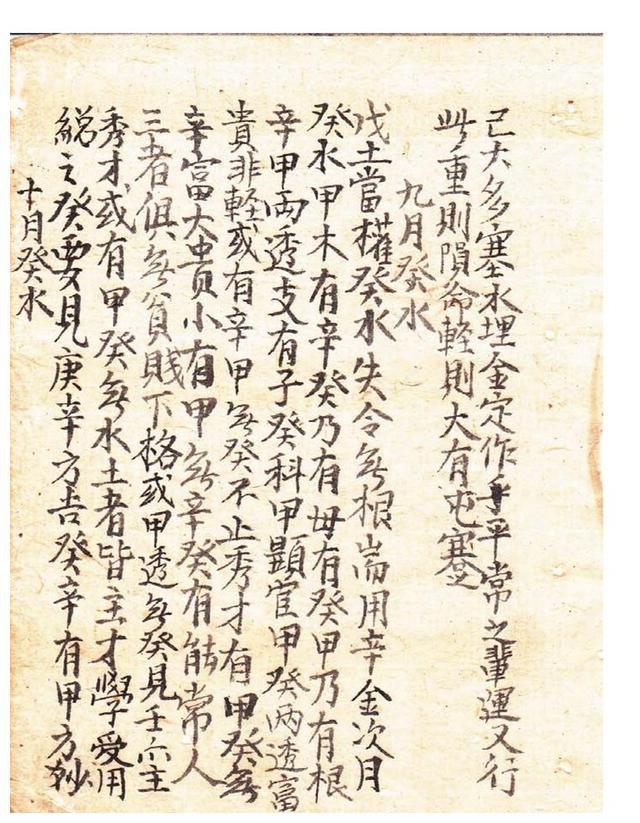 己大多塞水埋金定作手平常之輩運又行
此重則隕命輕則大有屯蹇
九月癸水
戊土當權癸水失令無根耑用辛金次用
癸水甲木有辛癸乃有母有癸甲乃有根
辛甲両透支有子癸科甲顯宦甲癸両透富
貴非輕或有辛甲無癸不止秀才有甲癸無
辛富大貴小有甲無辛癸有能常人
三者俱無貧賤下格或甲透無癸見壬亦主
秀才或有甲癸無水土者皆主才學受用
総之癸要見庚辛方吉癸辛有甲方妙
十月癸水